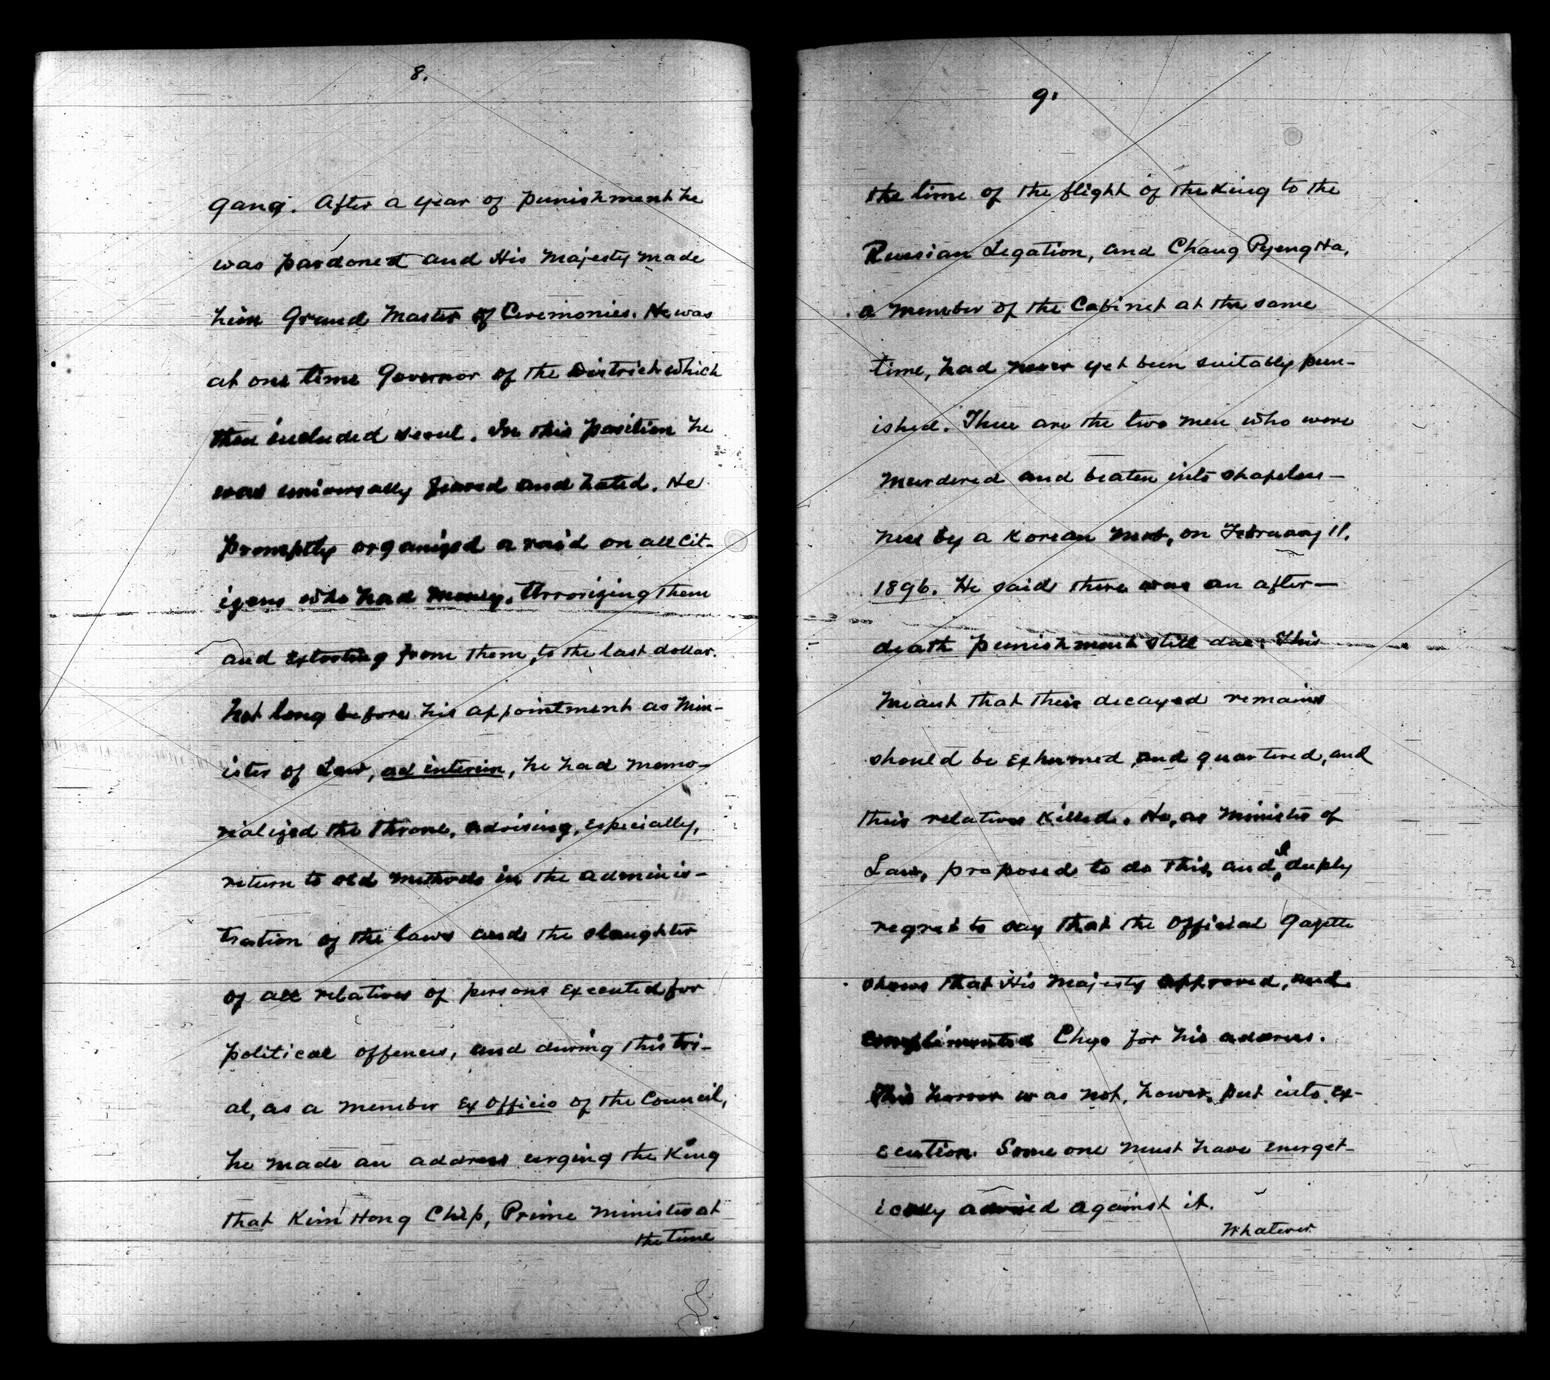 8.
gang. After a year of punishment he
was pardoned and His Majesty made
him Grand Master of Ceremonies. He was
at one time Governor of the District which
then included Seoul. In this position he
was universally feared and hated. He
promptly organized a raid on all cit-
izens who had money, terrorizing them
and extorting from them, to the last dollar.
Not long before his appointment as Min-
ister of Law, ad interim, he had memo-
rialized the throne, advising, especially,
return to old methods in the adminis-
tration of the laws and the slaughter
of all relatives of persons executed for
political offences, and during this tri-
al, as a member Ex Officio of the Council,
he made an address urging the King
that Kim Hong Chip, Prime Minister at
the time
9.
the time of the flight of the King to the
Russian Legation, and Chung Pyeng Ha,
a member of the Cabinet at the same
time, had never yet been suitably pun-
ished. These are the two men who were
murdered and beaten into shapeless-
ness by a Korean mob, on February 11,
1896. He said there was an after-
death punishment still due. This
meant that their decayed remains
should be exhumed and quartered, and
their relatives killed. He, as Minister of
Law, proposed to do this, and I deeply
regret to say that the Official Gazette
shows that His Majesty approved, and
complimented Chyo for his address.
This horror was not, hower, put into ex-
ecution. Some one must have energet-
ically advised against it.
Whatever